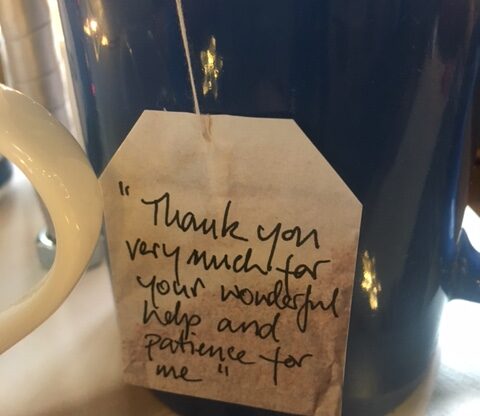 "Thank you
very much for
your wonderful
help and
patience for
me"